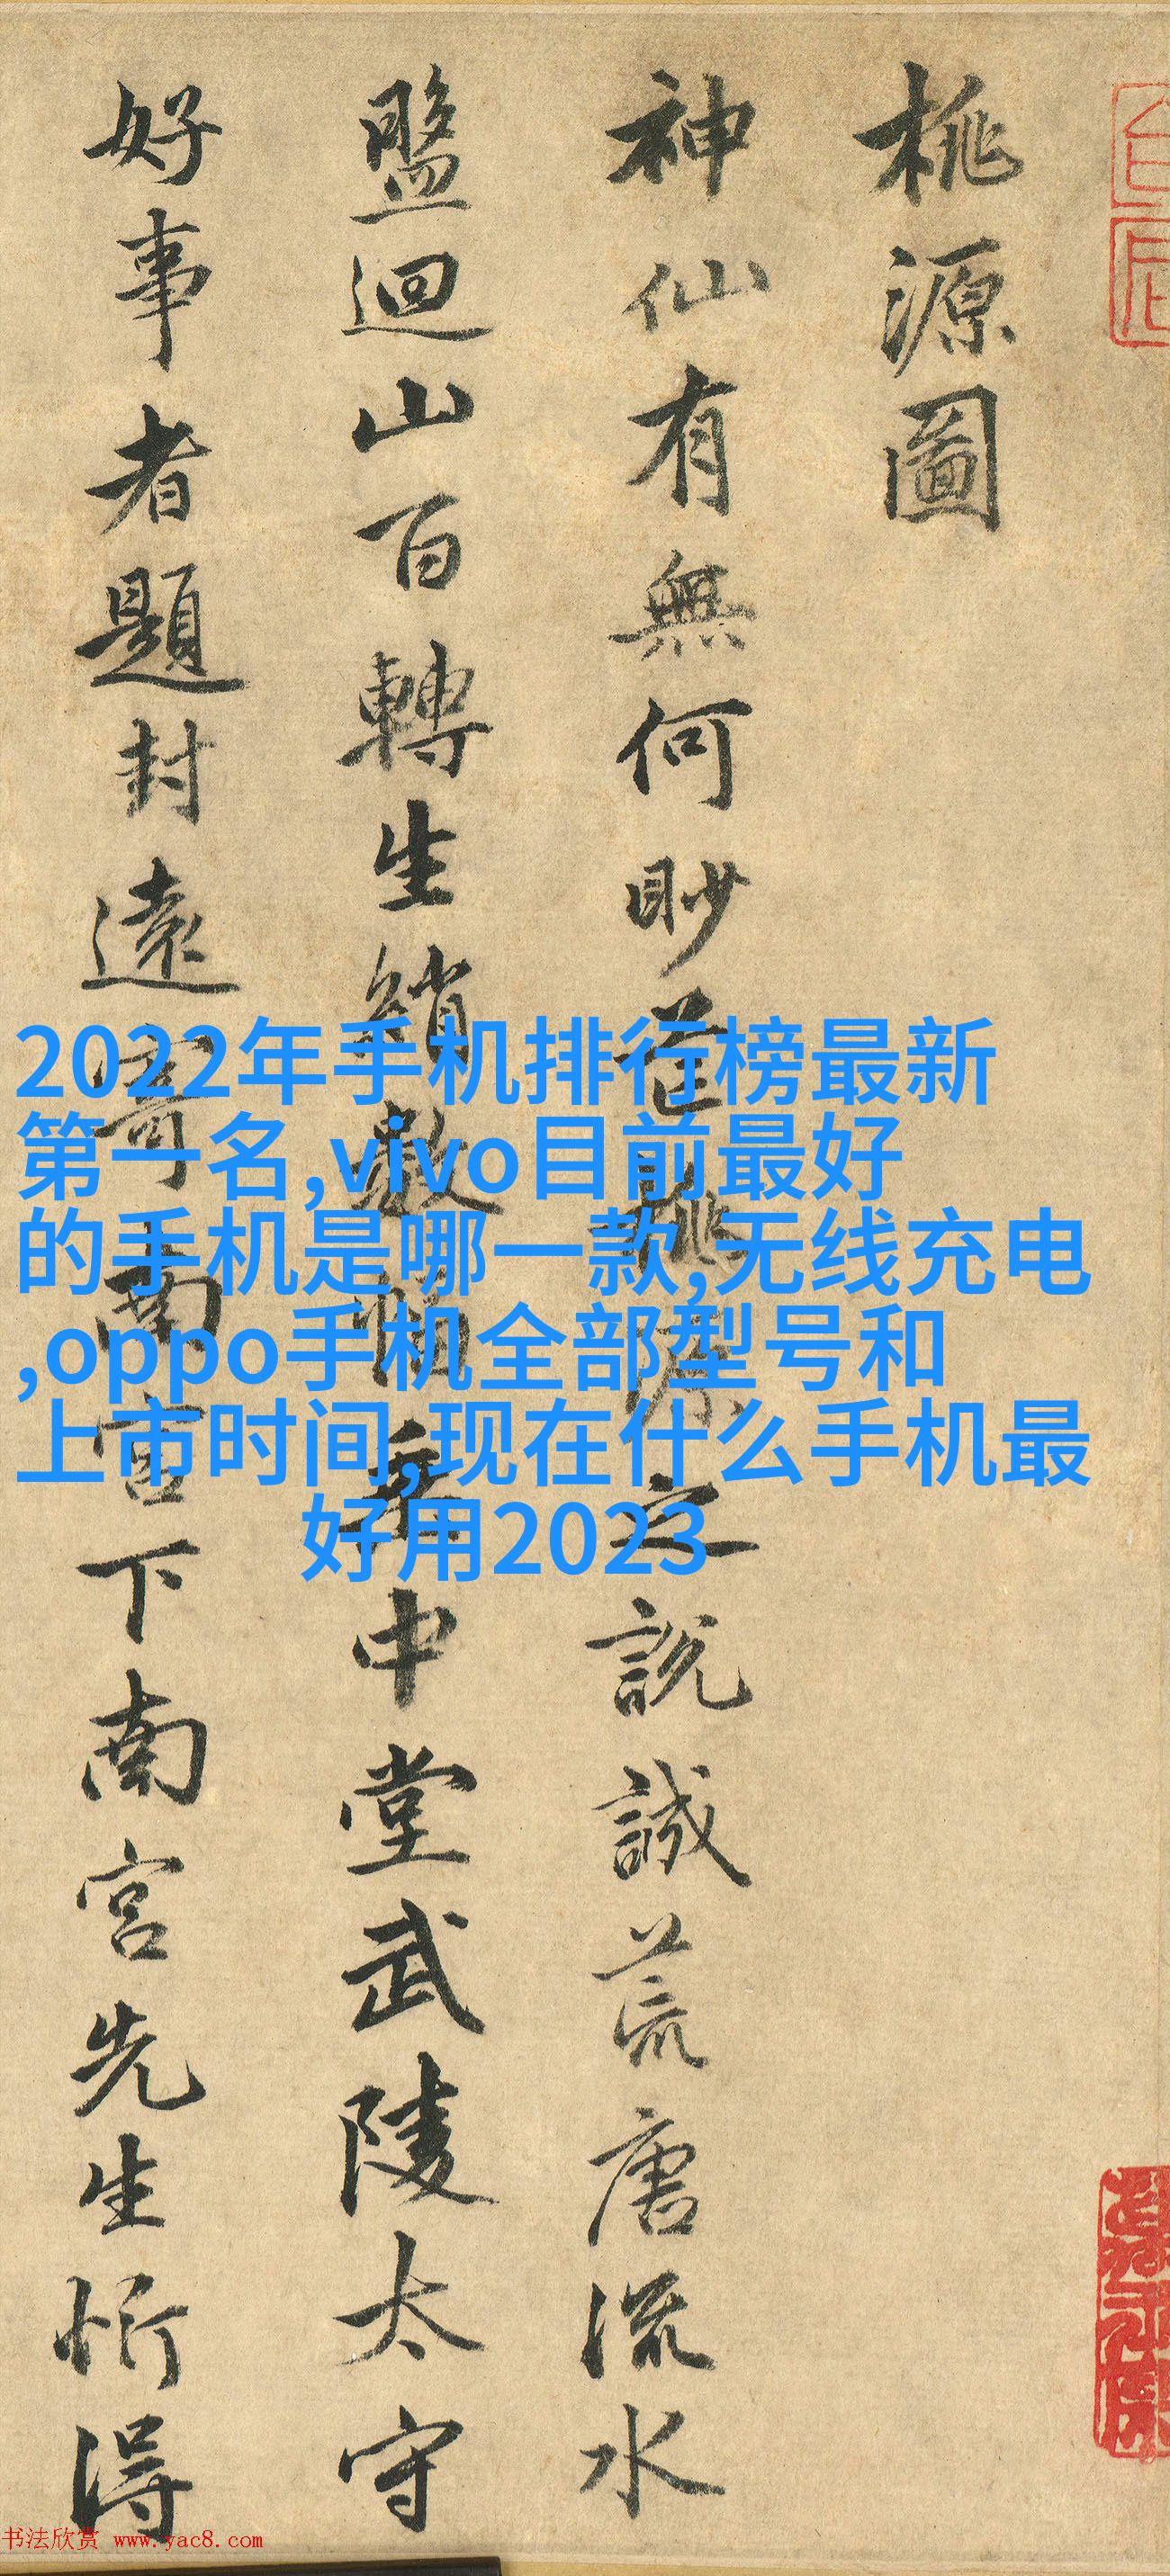 桃源圖
神仙有無何眇芒桃源之説誠荒唐流水
盤迴山百轉生綃數幅垂中堂武陵太守
好事者題封遠寄南宮下南宮先生忻得
2022年手机排行榜最新
第一名,vivo目前最好
的手机是哪一款,无线充电
,oppo手机全部型号和
上市时间,现在什么手机最
好用2023
书法欣赏 www.yac8.com